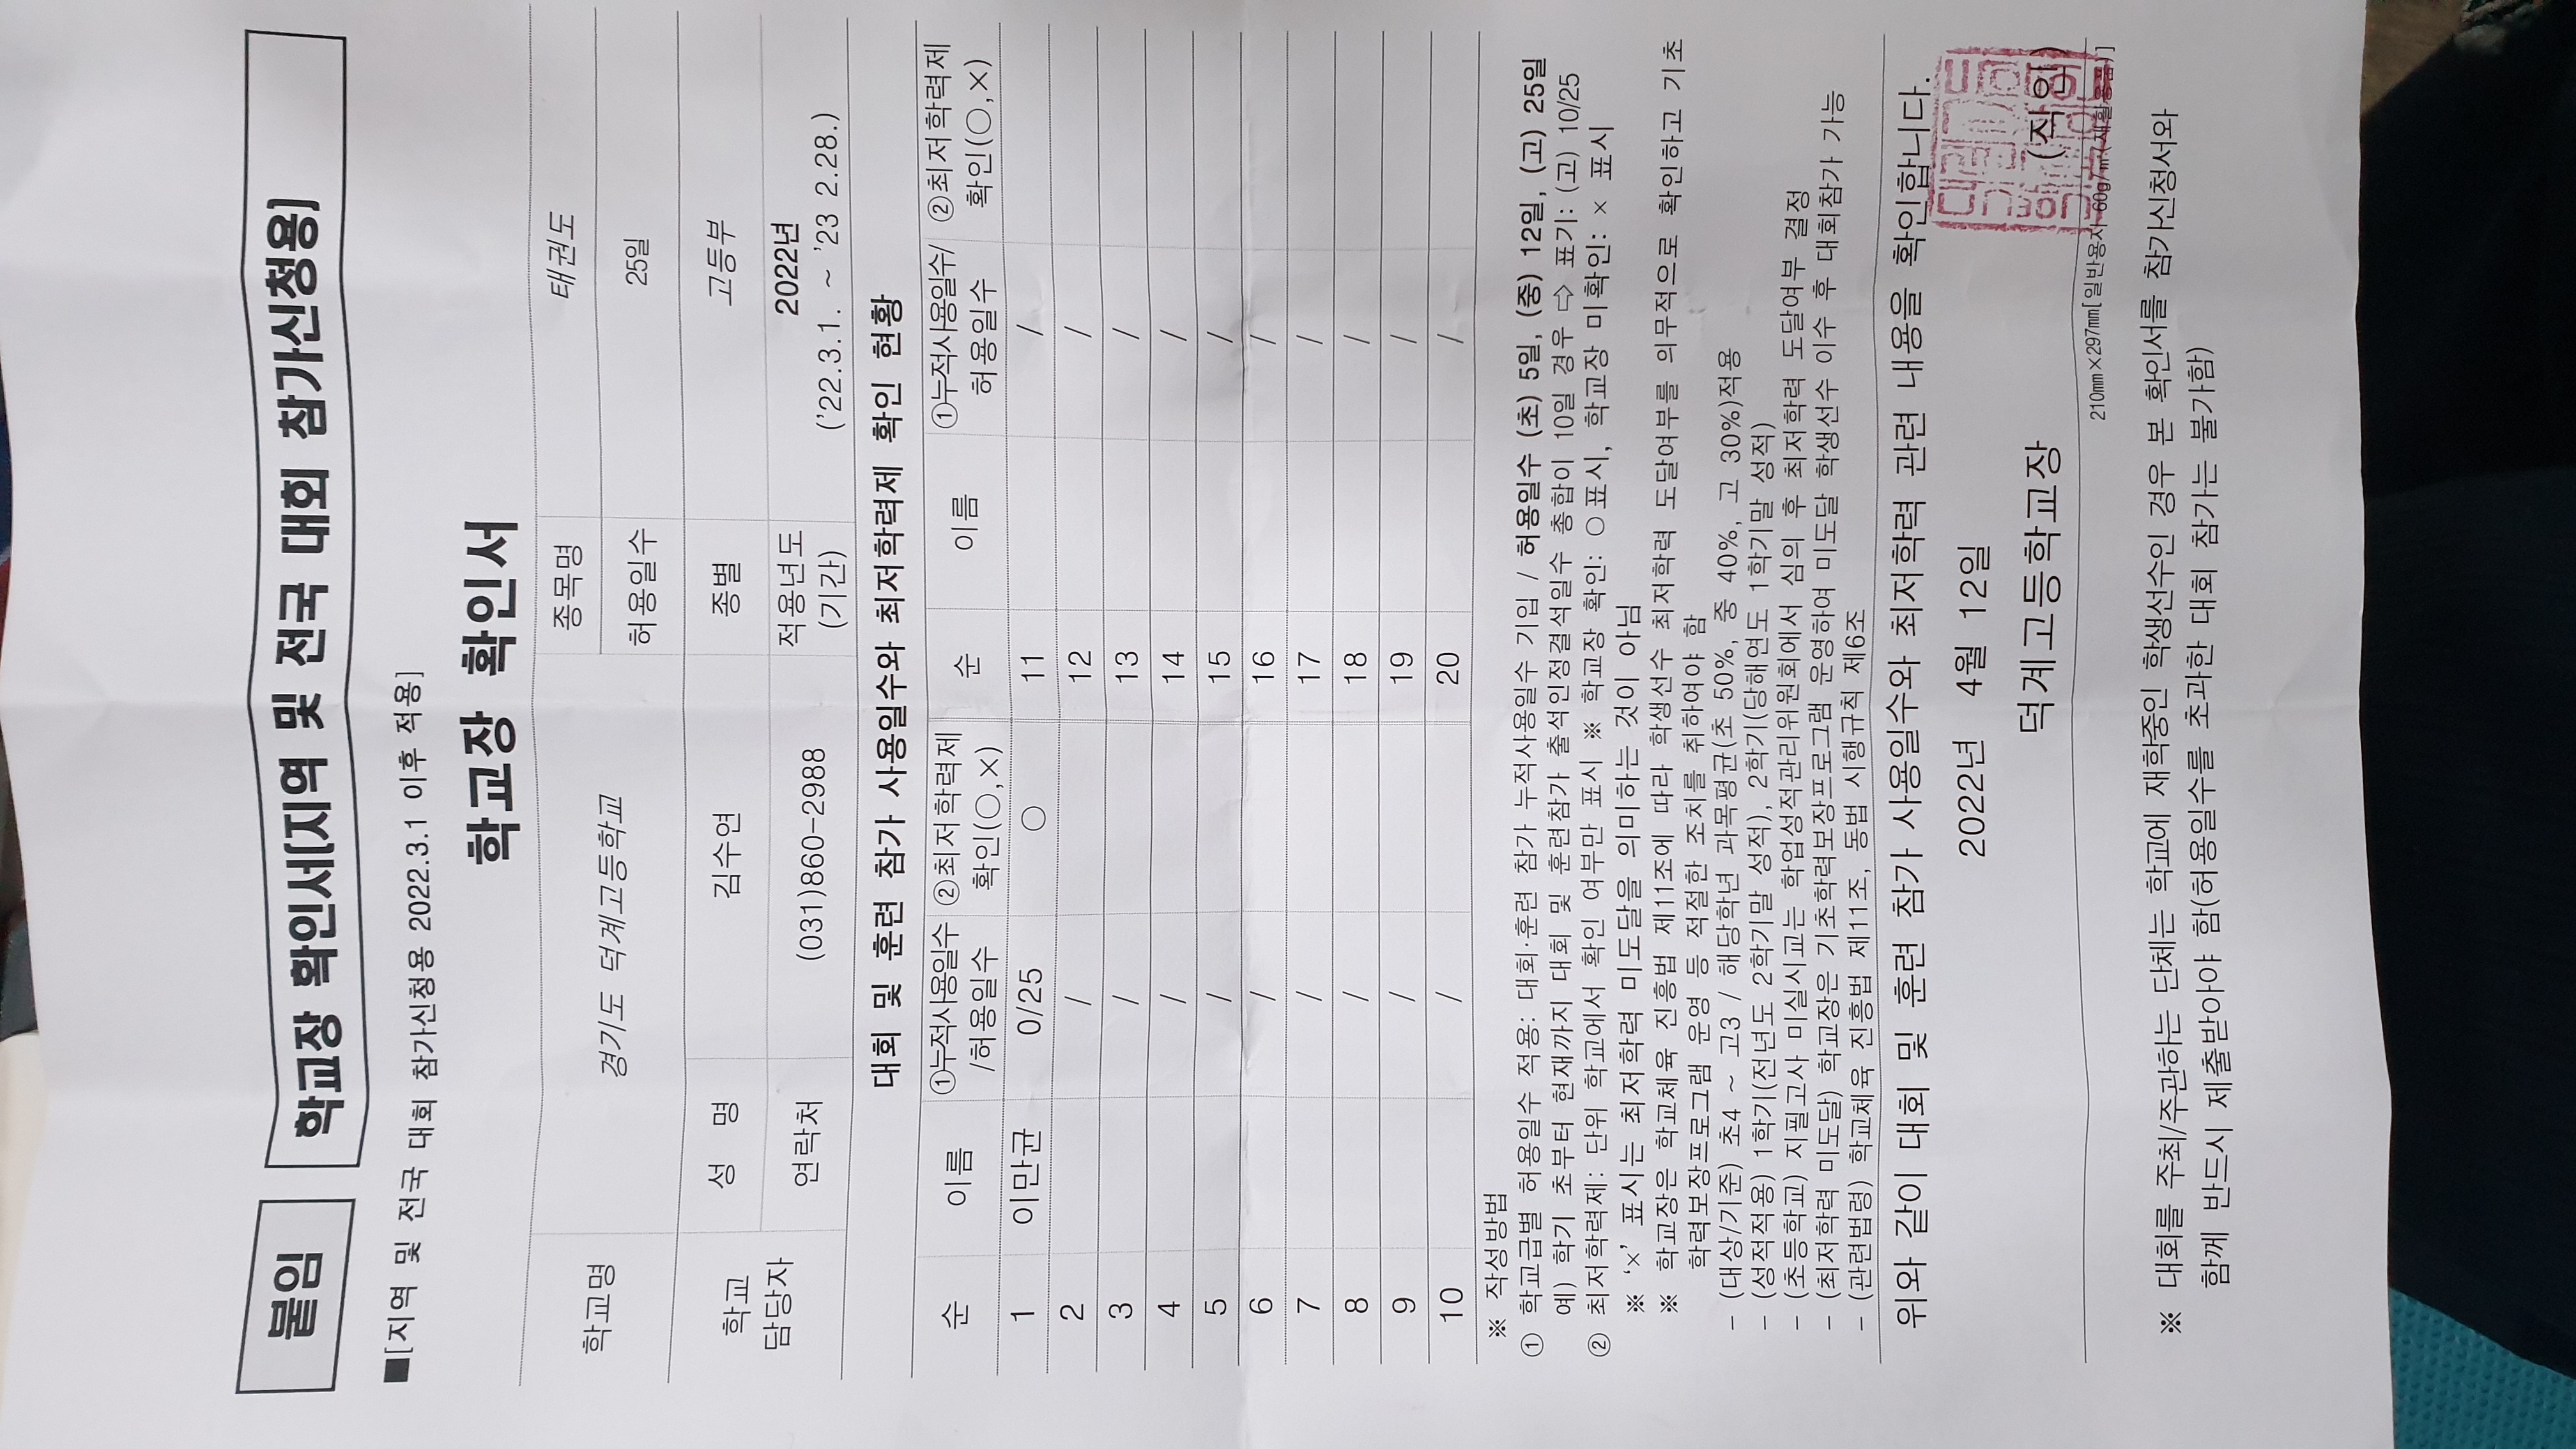 붙임
학교장 확인서[지역 및 전국 대회 참가신청용]
■[지역 및 전국 대회 참가신청용 2022.3.1 이후 적용]
학교장 확인서
학교명 경기도 덕계고등학교 종목명 태권도
허용일수 25일
학교 담당자 성 명 김수연 종별 고등부
연락처 (031)860-2988 적용년도 (기간) 2022년
('22.3.1. ~ '23 2.28.)
대회 및 훈련 참가 사용일수와 최저학력제 확인 현황
순 이름 ①누적사용일수 /허용일수 ②최저학력제 확인(○,×) 순 이름 ①누적사용일수/ 허용일수 ②최저학력제 확인(○,×)
1 이만균 0/25 ○ 11 /
2 / 12 /
3 / 13 /
4 / 14 /
5 / 15 /
6 / 16 /
7 / 17 /
8 / 18 /
9 / 19 /
10 / 20 /
※ 작성방법
① 학교급별 허용일수 적용: 대회·훈련 참가 누적사용일수 기입 / 허용일수 (초) 5일, (중) 12일, (고) 25일
예) 학기 초부터 현재까지 대회 및 훈련참가 출석인정결석일수 총합이 10일 경우 ⇨ 표기: (고) 10/25
② 최저학력제: 단위 학교에서 확인 여부만 표시 ※ 학교장 확인: ○표시, 학교장 미확인: × 표시
※ '×' 표시는 최저학력 미도달을 의미하는 것이 아님
※ 학교장은 학교체육 진흥법 제11조에 따라 학생선수 최저학력 도달여부를 의무적으로 확인하고 기초
학력보장프로그램 운영 등 적절한 조치를 취하여야 함
- (대상/기준) 초4 ~ 고3 / 해당학년 과목평균(초 50%, 중 40%, 고 30%)적용
- (성적적용) 1학기(전년도 2학기말 성적), 2학기(당해연도 1학기말 성적)
- (초등학교) 지필고사 미실시교는 학업성적관리위원회에서 심의 후 최저학력 도달여부 결정
- (최저학력 미도달) 학교장은 기초학력보장프로그램 운영하여 미도달 학생선수 이수 후 대회참가 가능
- (관련법령) 학교체육 진흥법 제11조, 동법 시행규칙 제6조
위와 같이 대회 및 훈련 참가 사용일수와 최저학력 관련 내용을 확인합니다.
2022년 4월 12일
덕계고등학교장 (직인)
210㎜×297㎜[일반용지 60g/㎡(재활용품)]
※ 대회를 주최/주관하는 단체는 학교에 재학중인 학생선수인 경우 본 확인서를 참가신청서와
함께 반드시 제출받아야 함(허용일수를 초과한 대회 참가는 불가함)